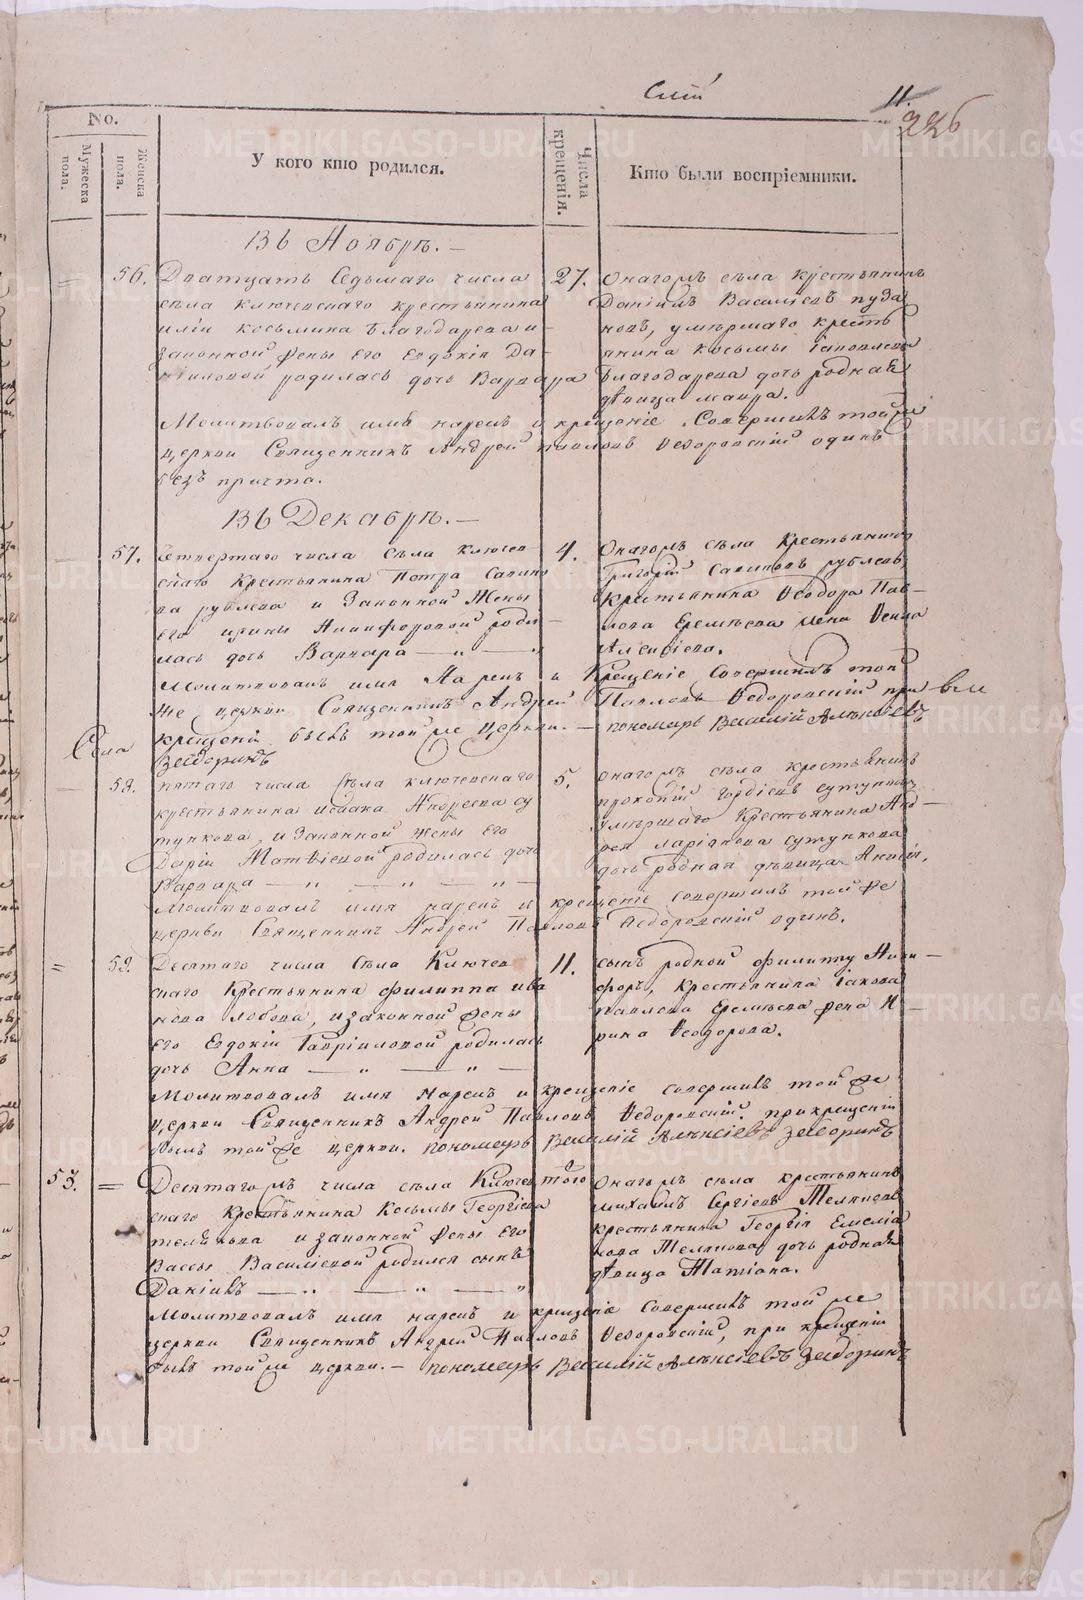 11.
226
No.
Мужеска пола.
Женска пола.
У кого кто родился.
Числа крещенія.
Кто были воспріемники.
Въ Ноябрѣ.
56. Дватцать Седьмаго числа
села Ключевскаго крестьянина
Косьмина Благодарева и
законной жены его Евдокіи Да-
ниловой родилась дочь Варвара
27.
Онагожъ села крестьянинъ
Данiилъ Василіевъ
умершаго кресть
янина Косьмы Iаковлева
Благодарева дочь родная
дѣвица Мавра.
Молитвовалъ имя нарекъ и крещеніе Совершилъ той же
церкви Священникъ Андрей Павловъ Ѳедоровскій одинъ
безъ причта.
Въ Декабрѣ.
57. Четвертаго числа села Ключев
скаго Крестьянина Петра Савино
ва Рублева и Законной Жены
его Ирины Никифоровой роди-
лась дочь Варвара
4.
Онагожъ села Крестьянинъ
Григорій Савиновъ Рублевъ
Крестьянина Ѳеодора Пав-
лова Еремѣева жена Ѳекла
Алексіева.
Молитвовалъ имя Нарекъ и Крещеніе Совершилъ той
же церкви Священникъ Андрей Павловъ Ѳедоровскій при
крещеніи былъ той же Церкви. - пономарь Василій Алѣксіевъ
Зайдоринъ
Села
58. пятаго числа Села Ключевскаго
крестьянина Исаака Андреева Су
тункова, и Законной жены Его
Даріи Матвіевой родилась дочь
Варвара
5.
Онагожъ села крестьянинъ
Прокопій Гордіевъ Сутунковъ
Умершаго Крестьянина Анд-
рея Ларіонова Сутункова
дочь родная дѣвица
Молитвовалъ имя нарекъ и крещеніе совершилъ той же
церкви Священникъ Андрей Павловъ Ѳедоровскій одинъ.
59. Десятаго числа Села Ключев
скаго Крестьянина Филиппа Ива
нова Лобова, и законной жены
Его Евдокіи Гавріиловой родилась
дочь Анна
11.
сынъ родной Филиппу Ники-
форъ, Крестьянина Iакова
Павлова Еремѣева жена И-
рина Ѳеодорова.
Молитвовалъ имя нарекъ и крещеніе совершилъ той же
церкви Священникъ Андрей Павловъ Ѳедоровскій. при крещеніи
былъ той же церкви. пономарь Василій Алѣксіевъ Зайдоринъ
53. Десятагожъ числа села Ключев
скаго Крестьянина Косьмы Георгіева
Телякова и законной жены Его
Вассы Василіевой родился сынъ
Даніилъ
того
Онагожъ села крестьянинъ
Михаилъ Сергіевъ Теляковъ
крестьянина Георгія Емеліа
нова Телякова дочь родная
дѣвица Татіана.
Молитвовалъ имя нарекъ и крещеніе Совершилъ той же
церкви Священникъ Андрей Павловъ Ѳедоровскій, при крещеніи
былъ той же церкви. - пономарь Василій Алѣксіевъ Зайдоринъ
METRIKI.GASO-URAL.RU